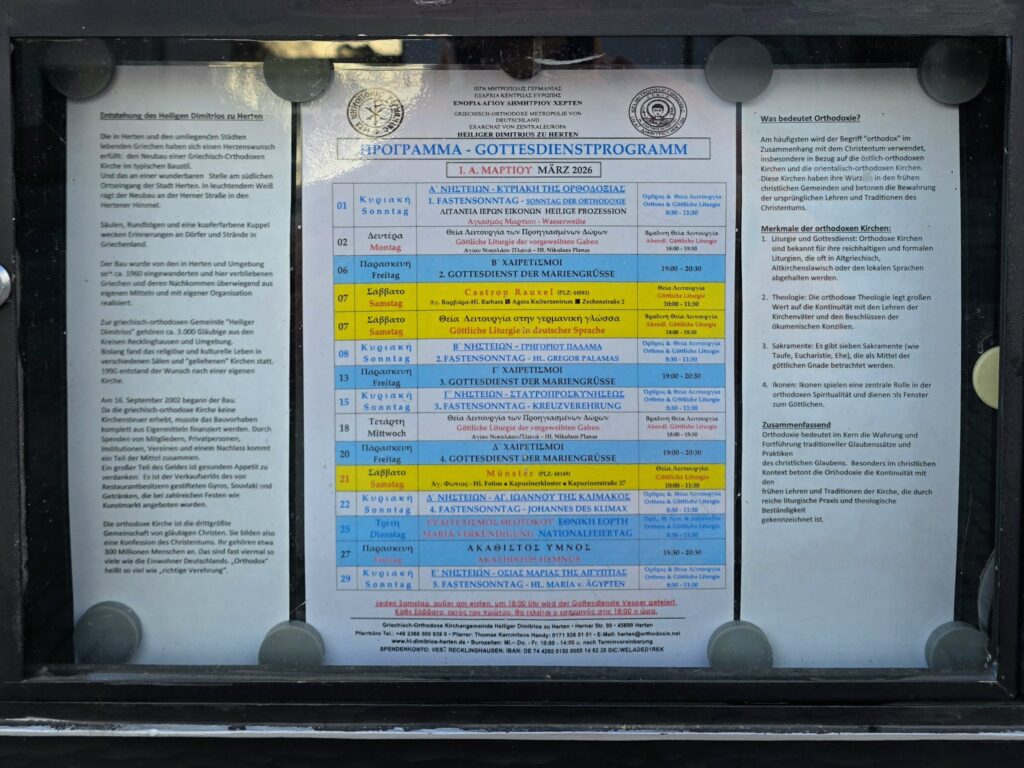 Entstehung des Heiligen Dimitrios zu Herten
Die in Herten und den umliegenden Städten
lebenden Griechen haben sich einen Herzenswunsch
erfüllt: den Neubau einer Griechisch-Orthodoxen
Kirche im typischen Baustil.
Und das an einer wunderbaren Stelle am südlichen
Ortseingang der Stadt Herten. In leuchtendem Weiß
ragt der Neubau an der Herner Straße in den
Hertener Himmel.
Säulen, Rundbögen und eine kupferfarbene Kuppel
wecken Erinnerungen an Dörfer und Strände in
Griechenland.
Der Bau wurde von den in Herten und Umgebung
seit ca. 1960 eingewanderten und hier verbliebenen
Griechen und deren Nachkommen überwiegend aus
eigenen Mitteln und mit eigener Organisation
realisiert.
Zur griechisch-orthodoxen Gemeinde "Heiliger
Dimitrios" gehören ca. 3.000 Gläubige aus den
Kreisen Recklinghausen und Umgebung.
Bislang fand das religiöse und kulturelle Leben in
verschiedenen Sälen und "geliehenen" Kirchen statt.
1990 entstand der Wunsch nach einer eigenen
Kirche.
Am 16. September 2002 begann der Bau.
Da die griechisch-orthodoxe Kirche keine
Kirchensteuer erhebt, musste das Bauvorhaben
komplett aus Eigenmitteln finanziert werden. Durch
Spenden von Mitgliedern, Privatpersonen,
Institutionen, Vereinen und einem Nachlass kommt
ein Teil der Mittel zusammen.
Ein großer Teil des Geldes ist gesundem Appetit zu
verdanken: Es ist der Verkaufserlös des von
Restaurantbesitzern gestifteten Gyros, Souvlaki und
Getränken, die bei zahlreichen Festen wie
Kunstmarkt angeboten wurden.
Die orthodoxe Kirche ist die drittgrößte
Gemeinschaft von gläubigen Christen. Sie bilden also
eine Konfession des Christentums. Ihr gehören etwa
300 Millionen Menschen an. Das sind fast viermal so
viele wie die Einwohner Deutschlands. „Orthodox"
heißt so viel wie „richtige Verehrung".
ΙΕΡΑ ΜΗΤΡΟΠΟΛΙΣ ΓΕΡΜΑΝΙΑΣ
ΕΞΑΡΧΙΑ ΚΕΝΤΡΩΑΣ ΕΥΡΩΠΗΣ
ΕΝΟΡΙΑ ΑΓΙΟΥ ΔΗΜΗΤΡΙΟΥ ΧΕΡΤΕΝ
GRIECHISCH-ORTHODOXE METROPOLIE VON
DEUTSCHLAND
EXARCHAT VON ZENTRALEUROPA
HEILIGER DIMITRIOS ZU HERTEN
ΠΡΟΓΡΑΜΜΑ - GOTTESDIENSTPROGRAMM
Ι. Α. ΜΑΡΤΙΟΥ MÄRZ 2026
01 Κυριακή Sonntag
Α΄ ΝΗΣΤΕΙΩΝ - ΚΥΡΙΑΚΗ ΤΗΣ ΟΡΘΟΔΟΞΙΑΣ
1. FASTENSONNTAG - SONNTAG DER ORTHODOXIE
ΛΙΤΑΝΕΙΑ ΙΕΡΩΝ ΕΙΚΟΝΩΝ HEILIGE PROZESSION
Αγιασμός Μαρτίου - Wasserweihe
Όρθρος & Θεία Λειτουργία
Orthros & Göttliche Liturgie
8:30 - 11:30
02 Δευτέρα Montag
Θεία Λειτουργία των Προηγιασμένων Δώρων
Göttliche Liturgie der vorgeweihten Gaben
Αγίου Νικολάου Πλανά - Hl. Nikolaus Planas
Βραδινή Θεία Λειτουργία
Abendl. Göttliche Liturgie
18:00 - 19:30
06 Παρασκευή Freitag
Β΄ ΧΑΙΡΕΤΙΣΜΟΙ
2. GOTTESDIENST DER MARIENGRÜSSE
19:00 - 20:30
07 Σάββατο Samstag
Castrop Rauxel (PLZ: 44581)
Αγ. Βαρβάρα-Hl. Barbara ■ Agora Kulturzentrum ■ Zechenstraße 2
Θεία Λειτουργία
Göttliche Liturgie
10:00 - 11:30
07 Σάββατο Samstag
Θεία Λειτουργία στην γερμανική γλώσσα
Göttliche Liturgie in deutscher Sprache
Βραδινή Θεία Λειτουργία
Abendl. Göttliche Liturgie
18:00 - 19:30
08 Κυριακή Sonntag
Β΄ ΝΗΣΤΕΙΩΝ - ΓΡΗΓΟΡΙΟΥ ΠΑΛΑΜΑ
2.FASTENSONNTAG - HL. GREGOR PALAMAS
Όρθρος & Θεία Λειτουργία
Orthros & Göttliche Liturgie
8:30 - 11:30
13 Παρασκευή Freitag
Γ΄ ΧΑΙΡΕΤΙΣΜΟΙ
3. GOTTESDIENST DER MARIENGRÜSSE
19:00 - 20:30
15 Κυριακή Sonntag
Γ΄ ΝΗΣΤΕΙΩΝ - ΣΤΑΥΡΟΠΡΟΣΚΥΝΗΣΕΩΣ
3. FASTENSONNTAG - KREUZVEREHRUNG
Όρθρος & Θεία Λειτουργία
Orthros & Göttliche Liturgie
8:30 - 11:30
18 Τετάρτη Mittwoch
Θεία Λειτουργία των Προηγιασμένων Δώρων
Göttliche Liturgie der vorgeweihten Gaben
Αγίου Νικολάου Πλανά - Hl. Nikolaus Planas
Βραδινή Θεία Λειτουργία
Abendl. Göttliche Liturgie
18:00 - 19:30
20 Παρασκευή Freitag
Δ΄ ΧΑΙΡΕΤΙΣΜΟΙ
4. GOTTESDIENST DER MARIENGRÜSSE
19:00 - 20:30
21 Σάββατο Samstag
Münster (PLZ: 48149)
Αγ. Φώτιος - Hl. Fotios ♦ Kapuzinerkloster ♦ Kapuzinerstraße 27
Θεία Λειτουργία
Göttliche Liturgie
10:00 - 11:30
22 Κυριακή Sonntag
Δ΄ ΝΗΣΤΕΙΩΝ - ΑΓ. ΙΩΑΝΝΟΥ ΤΗΣ ΚΛΙΜΑΚΟΣ
4. FASTENSONNTAG - JOHANNES DES KLIMAX
Όρθρος & Θεία Λειτουργία
Orthros & Göttliche Liturgie
8:30 - 11:30
25 Τρίτη Dienstag
ΕΥΑΓΓΕΛΙΣΜΟΣ ΘΕΟΤΟΚΟΥ ΕΘΝΙΚΗ ΕΟΡΤΗ
MARIA VERKÜNDIGUNG NATIONALFEIERTAG
Orthros & Göttliche Liturgie
8:30 - 11:30
27 Παρασκευή Freitag
ΑΚΑΘΙΣΤΟΣ ΥΜΝΟΣ
AKATHISTOS HYMNUS
18:30 - 20:30
29 Κυριακή Sonntag
Ε΄ ΝΗΣΤΕΙΩΝ - ΟΣΙΑΣ ΜΑΡΙΑΣ ΤΗΣ ΑΙΓΥΠΤΙΑΣ
5. FASTENSONNTAG - HL. MARIA v. ÄGYPTEN
Όρθρος & Θεία Λειτουργία
Orthros & Göttliche Liturgie
8:30 - 11:30
Jeden Samstag, außer am ersten, um 18:00 Uhr wird der Gottesdienste Vesper gefeiert.
Κάθε Σάββατο, εκτός του πρώτου, θα τελείται ο εσπερινός στις 18:00 η ώρα.
Griechisch-Orthodoxe Kirchengemeinde Heiliger Dimitrios zu Herten • Herner Str. 99 • 45699 Herten
www.hl-dimitrios-herten.de • Bürozeiten: Mi.– Do. - Fr. 10:00 - 14:00 u. nach Terminvereinbarung
Was bedeutet Orthodoxie?
Am häufigsten wird der Begriff "orthodox" im
Zusammenhang mit dem Christentum verwendet,
insbesondere in Bezug auf die östlich-orthodoxen
Kirchen und die orientalisch-orthodoxen Kirchen.
Diese Kirchen haben ihre in den frühen
christlichen Gemeinden und betonen die Bewahrung
der ursprünglichen Lehren und Traditionen des
Christentums.
Merkmale der orthodoxen Kirchen:
1. Liturgie und Gottesdienst: Orthodoxe Kirchen
sind bekannt für ihre reichhaltigen und formalen
Liturgien, die oft in Altgriechisch,
Altkirchenslawisch oder den lokalen Sprachen
abgehalten werden.
2. Theologie: Die orthodoxe Theologie legt großen
Wert auf die Kontinuität mit den Lehren der
Kirchenväter und den Beschlüssen der
ökumenischen Konzilien.
3. Sakramente: Es gibt sieben Sakramente (wie
Taufe, Eucharistie, Ehe), die als Mittel der
göttlichen Gnade betrachtet werden.
4. Ikonen: Ikonen spielen eine zentrale Rolle in der
orthodoxen Spiritualität und dienen als Fenster
zum Göttlichen.
Zusammenfassend
Orthodoxie bedeutet im Kern die Wahrung und
Fortführung traditioneller Glaubenssätze und
Praktiken
des christlichen Glaubens. Besonders im christlichen
Kontext betont die Orhodoxie die Kontinuität mit
den
frühen Lehren und Traditionen der Kirche, die durch
reiche liturgische Praxis und theologische
Beständigkeit
gekennzeichnet ist.